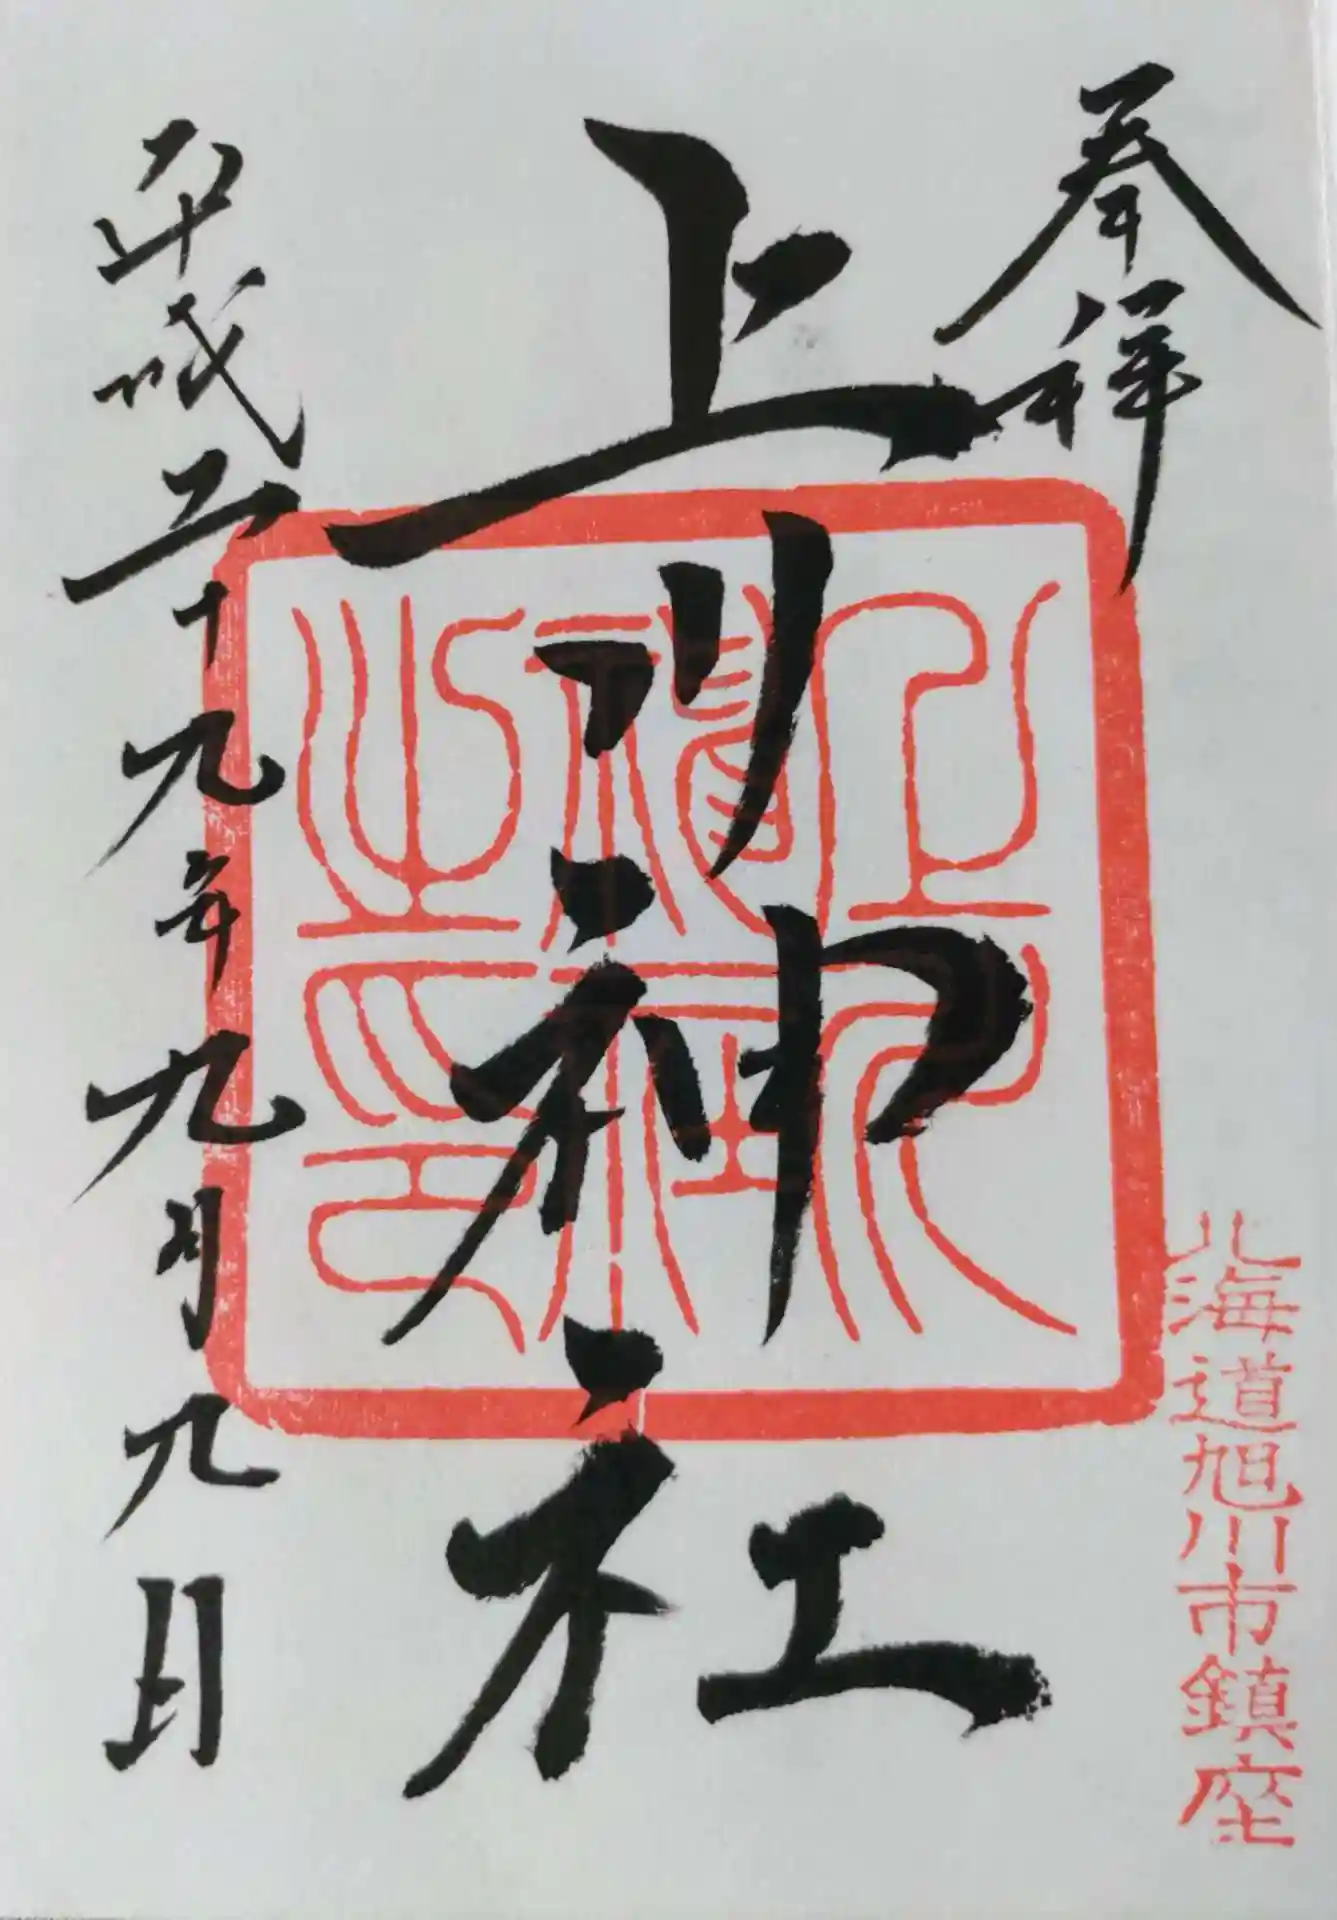 奉拝
北海道旭川市鎮座
上川神社
上川
神社
之印
平成二十九年九月九日